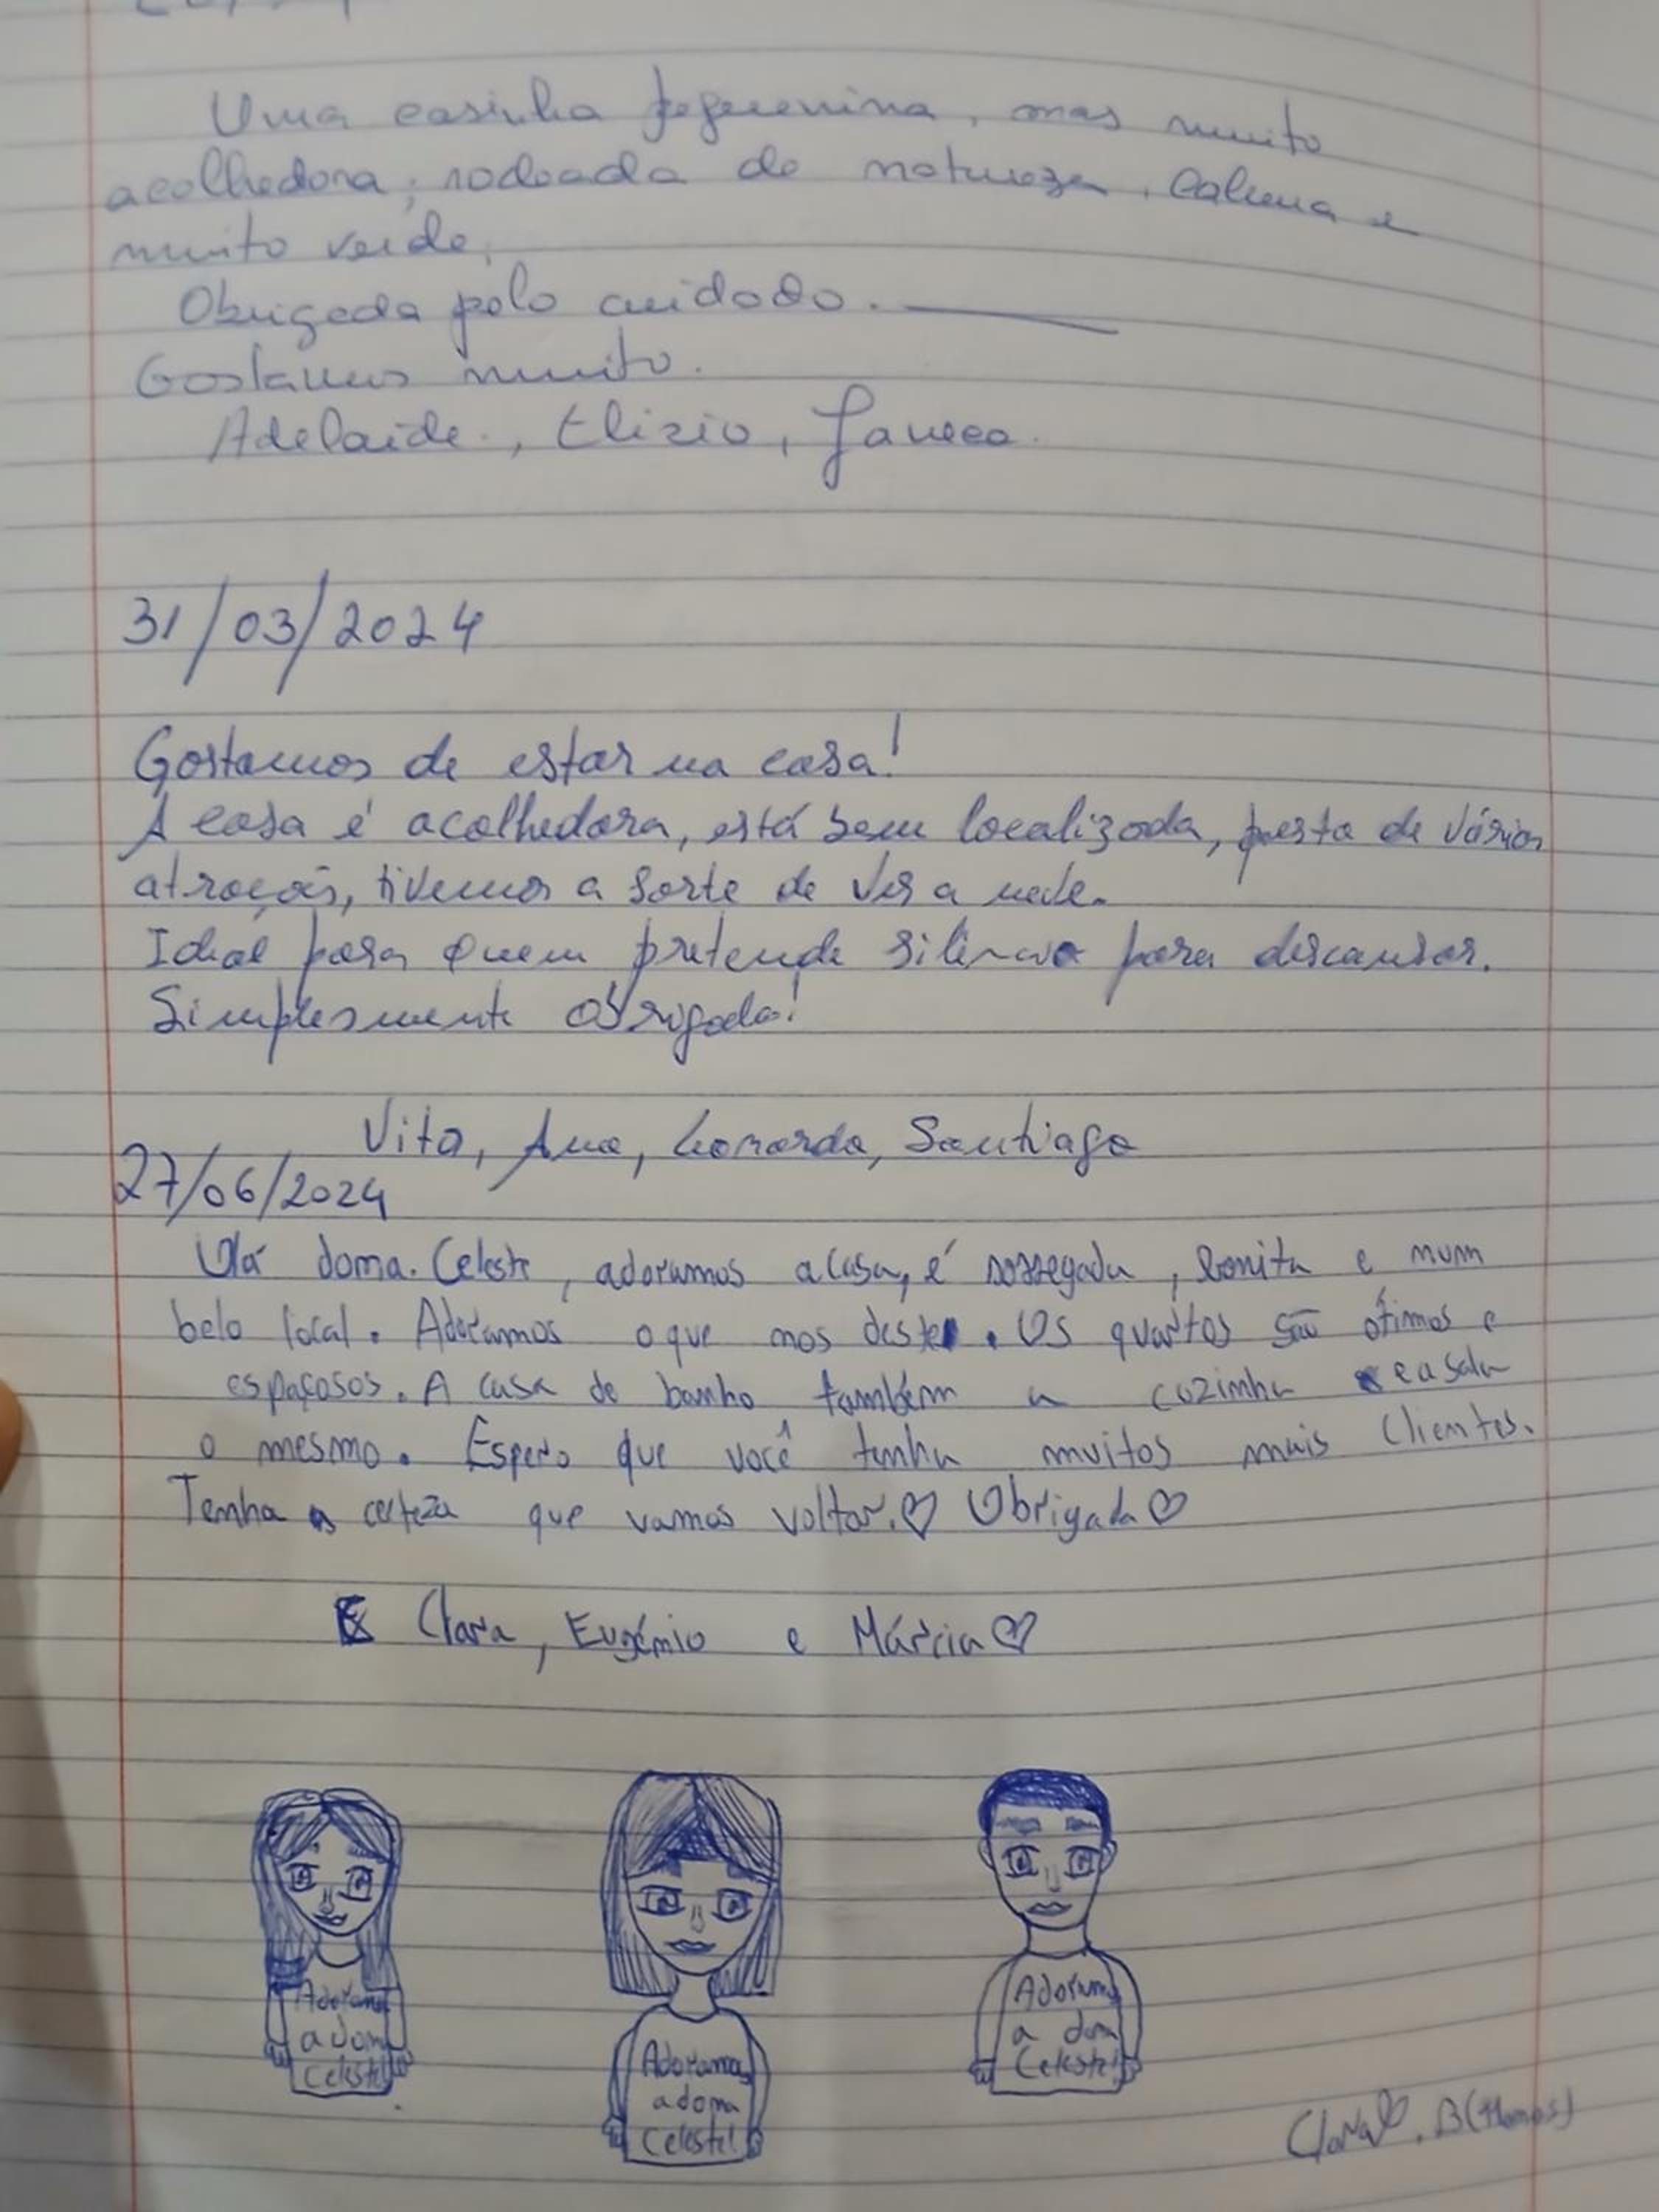 Uma casinha pequenina, mas muito
acolhedora, rodeada de natureza, calma e
muito verde,
Obrigada pelo cuidado.
Gostamos muito.
Adelaide, Elizio,
31/03/2024
Gostamos de estar na casa!
A casa é acolhedora, está bem localizada, perto de várias
atrações, tivemos a sorte de ver a neve.
Ideal para quem pretende silêncio para descansar.
Simplesmente obrigada!
Vito, Ana, Leonardo, Santiago
27/06/2024
Olá dona. Celeste, adoramos a casa, é sossegada, bonita e num
belo local. Adoramos o que nos deste. Os quartos são ótimos e
espaçosos. A casa de banho também a cozinha e a sala
o mesmo. Espero que você tenha muitos mais clientes.
Tenha a certeza que vamos voltar.♡ Obrigada♡
Clara, Eugénio e Márcia♡
Adoramos
a dona
Celeste!
Adoramos
a dona
Celeste!
Adoramos
a dona
Celeste!
Clara♡.